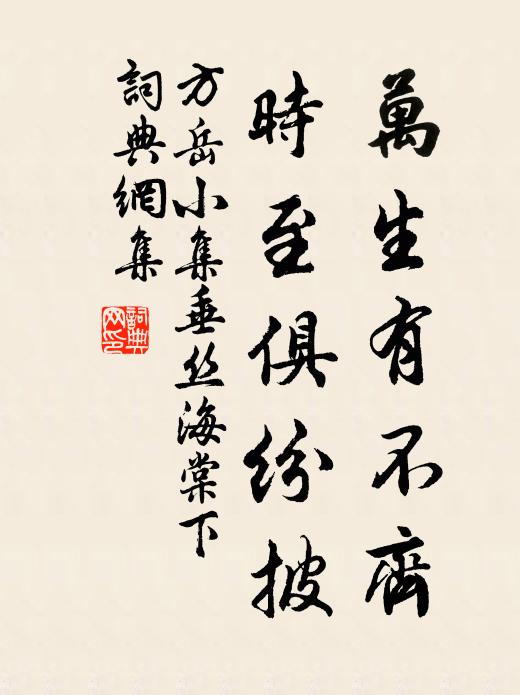 萬生有不齊
時至俱紛披
方岳小集垂丝海棠下
詞典網集
詞典网印